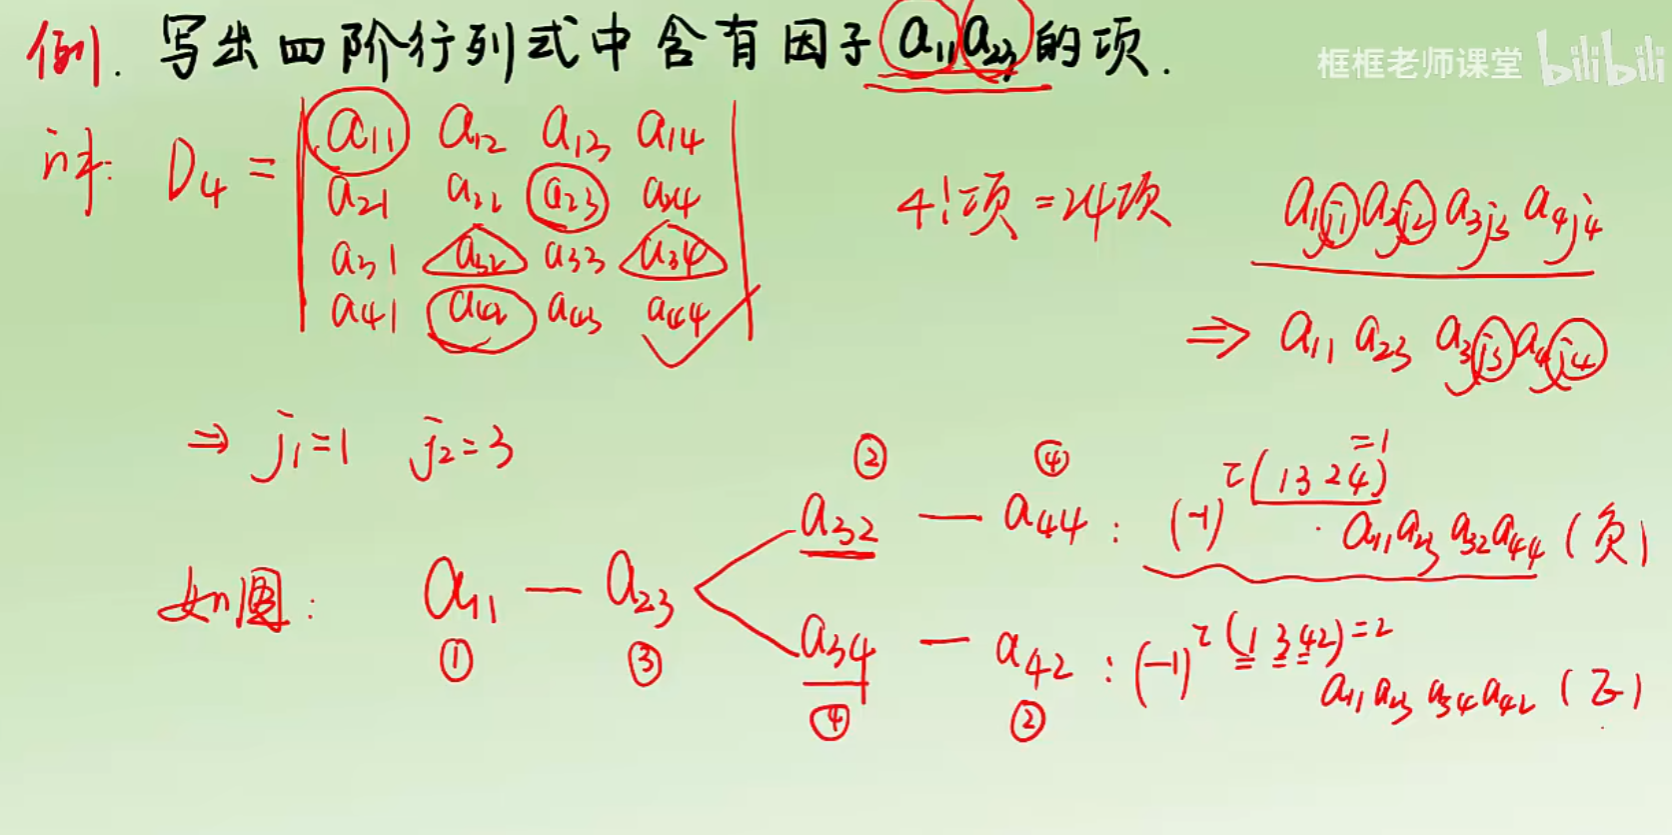 例. 写出四阶行列式中含有因子a₁₁a₂₃的项.
框框老师课堂 bilibili
解: D₄ =
a₁₁ a₁₂ a₁₃ a₁₄
a₂₁ a₂₂ a₂₃ a₂₄
a₃₁ a₃₂ a₃₃ a₃₄
a₄₁ a₄₂ a₄₃ a₄₄
4!项 = 24项
a₁j₁ a₂j₂ a₃j₃ a₄j₄
⇒ a₁₁ a₂₃ a₃j₃ a₄j₄
⇒ j₁=1 j₂=3
② ④
如图: a₁₁ — a₂₃ < a₃₂ — a₄₄ : (-1)^τ(1324)=1 · a₁₁a₂₃a₃₂a₄₄ (负)
① ③
a₃₄ — a₄₂ : (-1)^τ(1342)=2 a₁₁a₂₃a₃₄a₄₂ (正)
④ ②